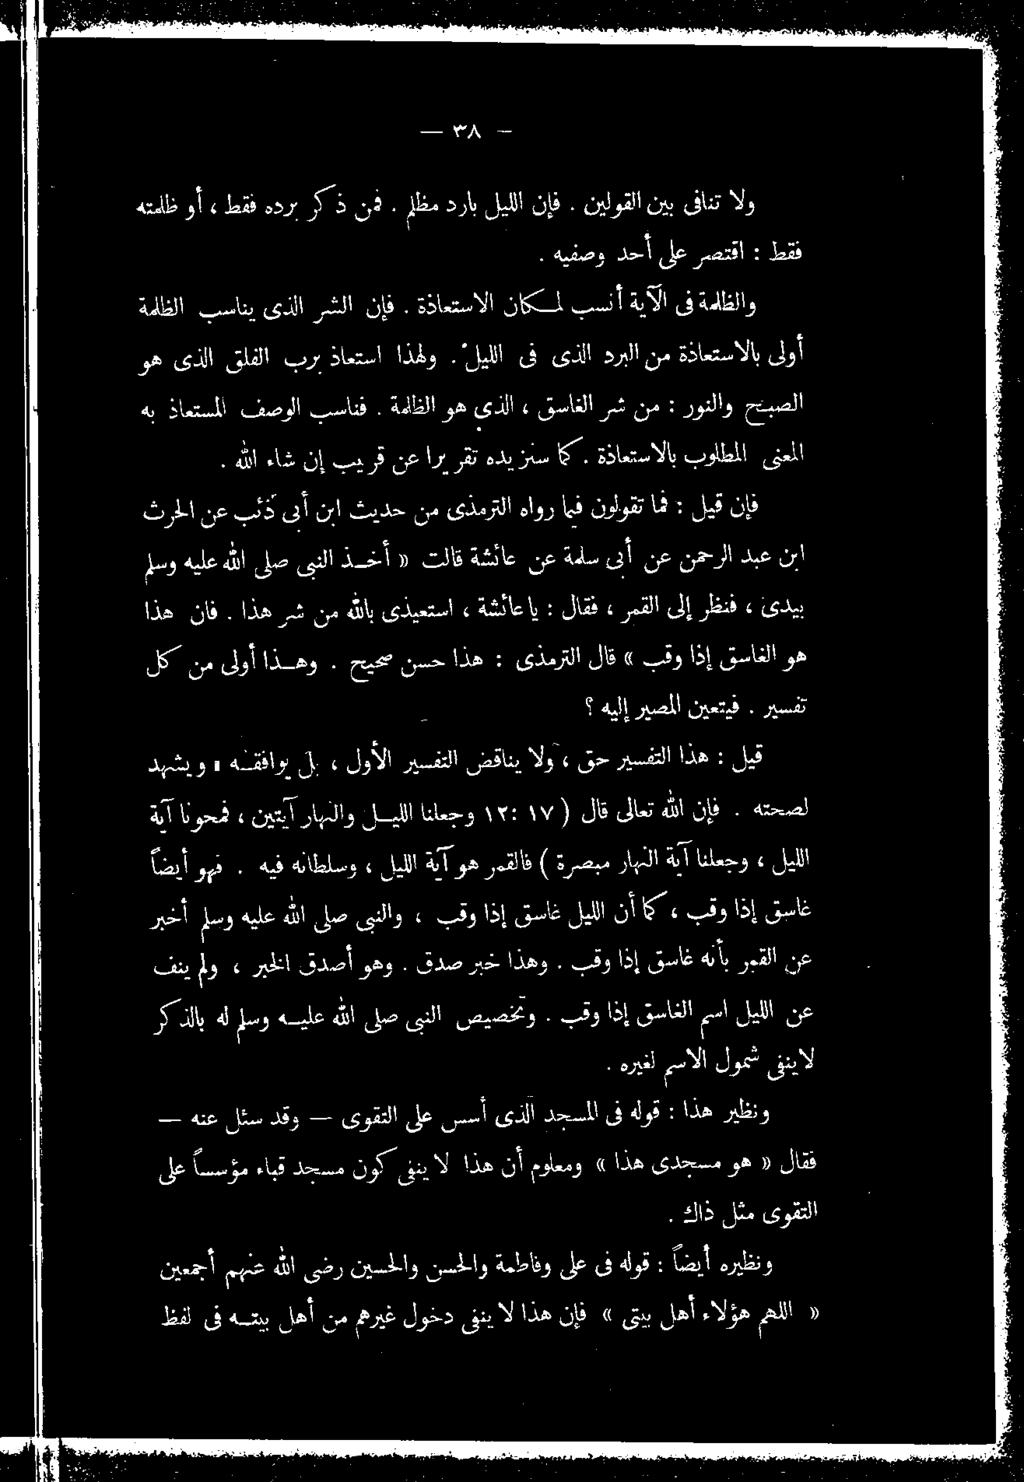 — ٣٨ —
ولا تنافى بين القولين . فإن الليل بارد مظلم . فمن ذكر برده فقط ، أو ظلمته
فقط : اقتصر على أحد وصفيه .
والظلمة فى الآية أنسب لمكان الاستعاذة . فإن الشر الذى يناسب الظلمة
أولى بالاستعاذة من البرد الذى فى الليل . ولهذا استعاذ برب الفلق الذى هو
الصبح والنور : من شر الغاسق ، الذى هو الظلمة . فناسب الوصف المستعاذ به
المعنى المطلوب بالاستعاذة . كما سنزيده تقريرا عن قريب إن شاء الله .
فإن قيل : فما تقولون فيما رواه الترمذى من حديث ابن أبى ذئب عن الحرث
ابن عبد الرحمن عن أبى سلمة عن عائشة قالت « أخذ النبى صلى الله عليه وسلم
بيدى ، فنظر إلى القمر ، فقال : يا عائشة ، استعيذى بالله من شر هذا . فان هذا
هو الغاسق إذا وقب » قال الترمذى : هذا حسن صحيح . وهذا أولى من كل
تفسير . فيتعين المصير إليه ؟
قيل : هذا التفسير حق ، ولا يناقض التفسير الأول ، بل يوافقه ، ويشهد
لصحته . فإن الله تعالى قال ( ١٧ : ١٢ وجعلنا الليل والنهار آيتين ، فمحونا آية
الليل ، وجعلنا آية النهار مبصرة ) فالقمر هو آية الليل ، وسلطانه فيه . فهو أيضاً
غاسق إذا وقب ، كما أن الليل غاسق إذا وقب ، والنبى صلى الله عليه وسلم أخبر
عن القمر بأنه غاسق إذا وقب . وهذا خبر صدق . وهو أصدق الخبر ، ولم ينف
عن الليل اسم الغاسق إذا وقب . وتخصيص النبى صلى الله عليه وسلم له بالذكر
لاينفى شمول الاسم لغيره .
ونظير هذا : قوله فى المسجد الذى أسس على التقوى — وقد سئل عنه —
فقال « هو مسجدى هذا » ومعلوم أن هذا لا ينفى كون مسجد قباء مؤسساً على
التقوى مثل ذاك .
ونظيره أيضاً : قوله فى على وفاطمة والحسن والحسين رضى الله عنهم أجمعين
« اللهم هؤلاء أهل بيتى » فإن هذا لا ينفى دخول غيرهم من أهل بيته فى لفظ